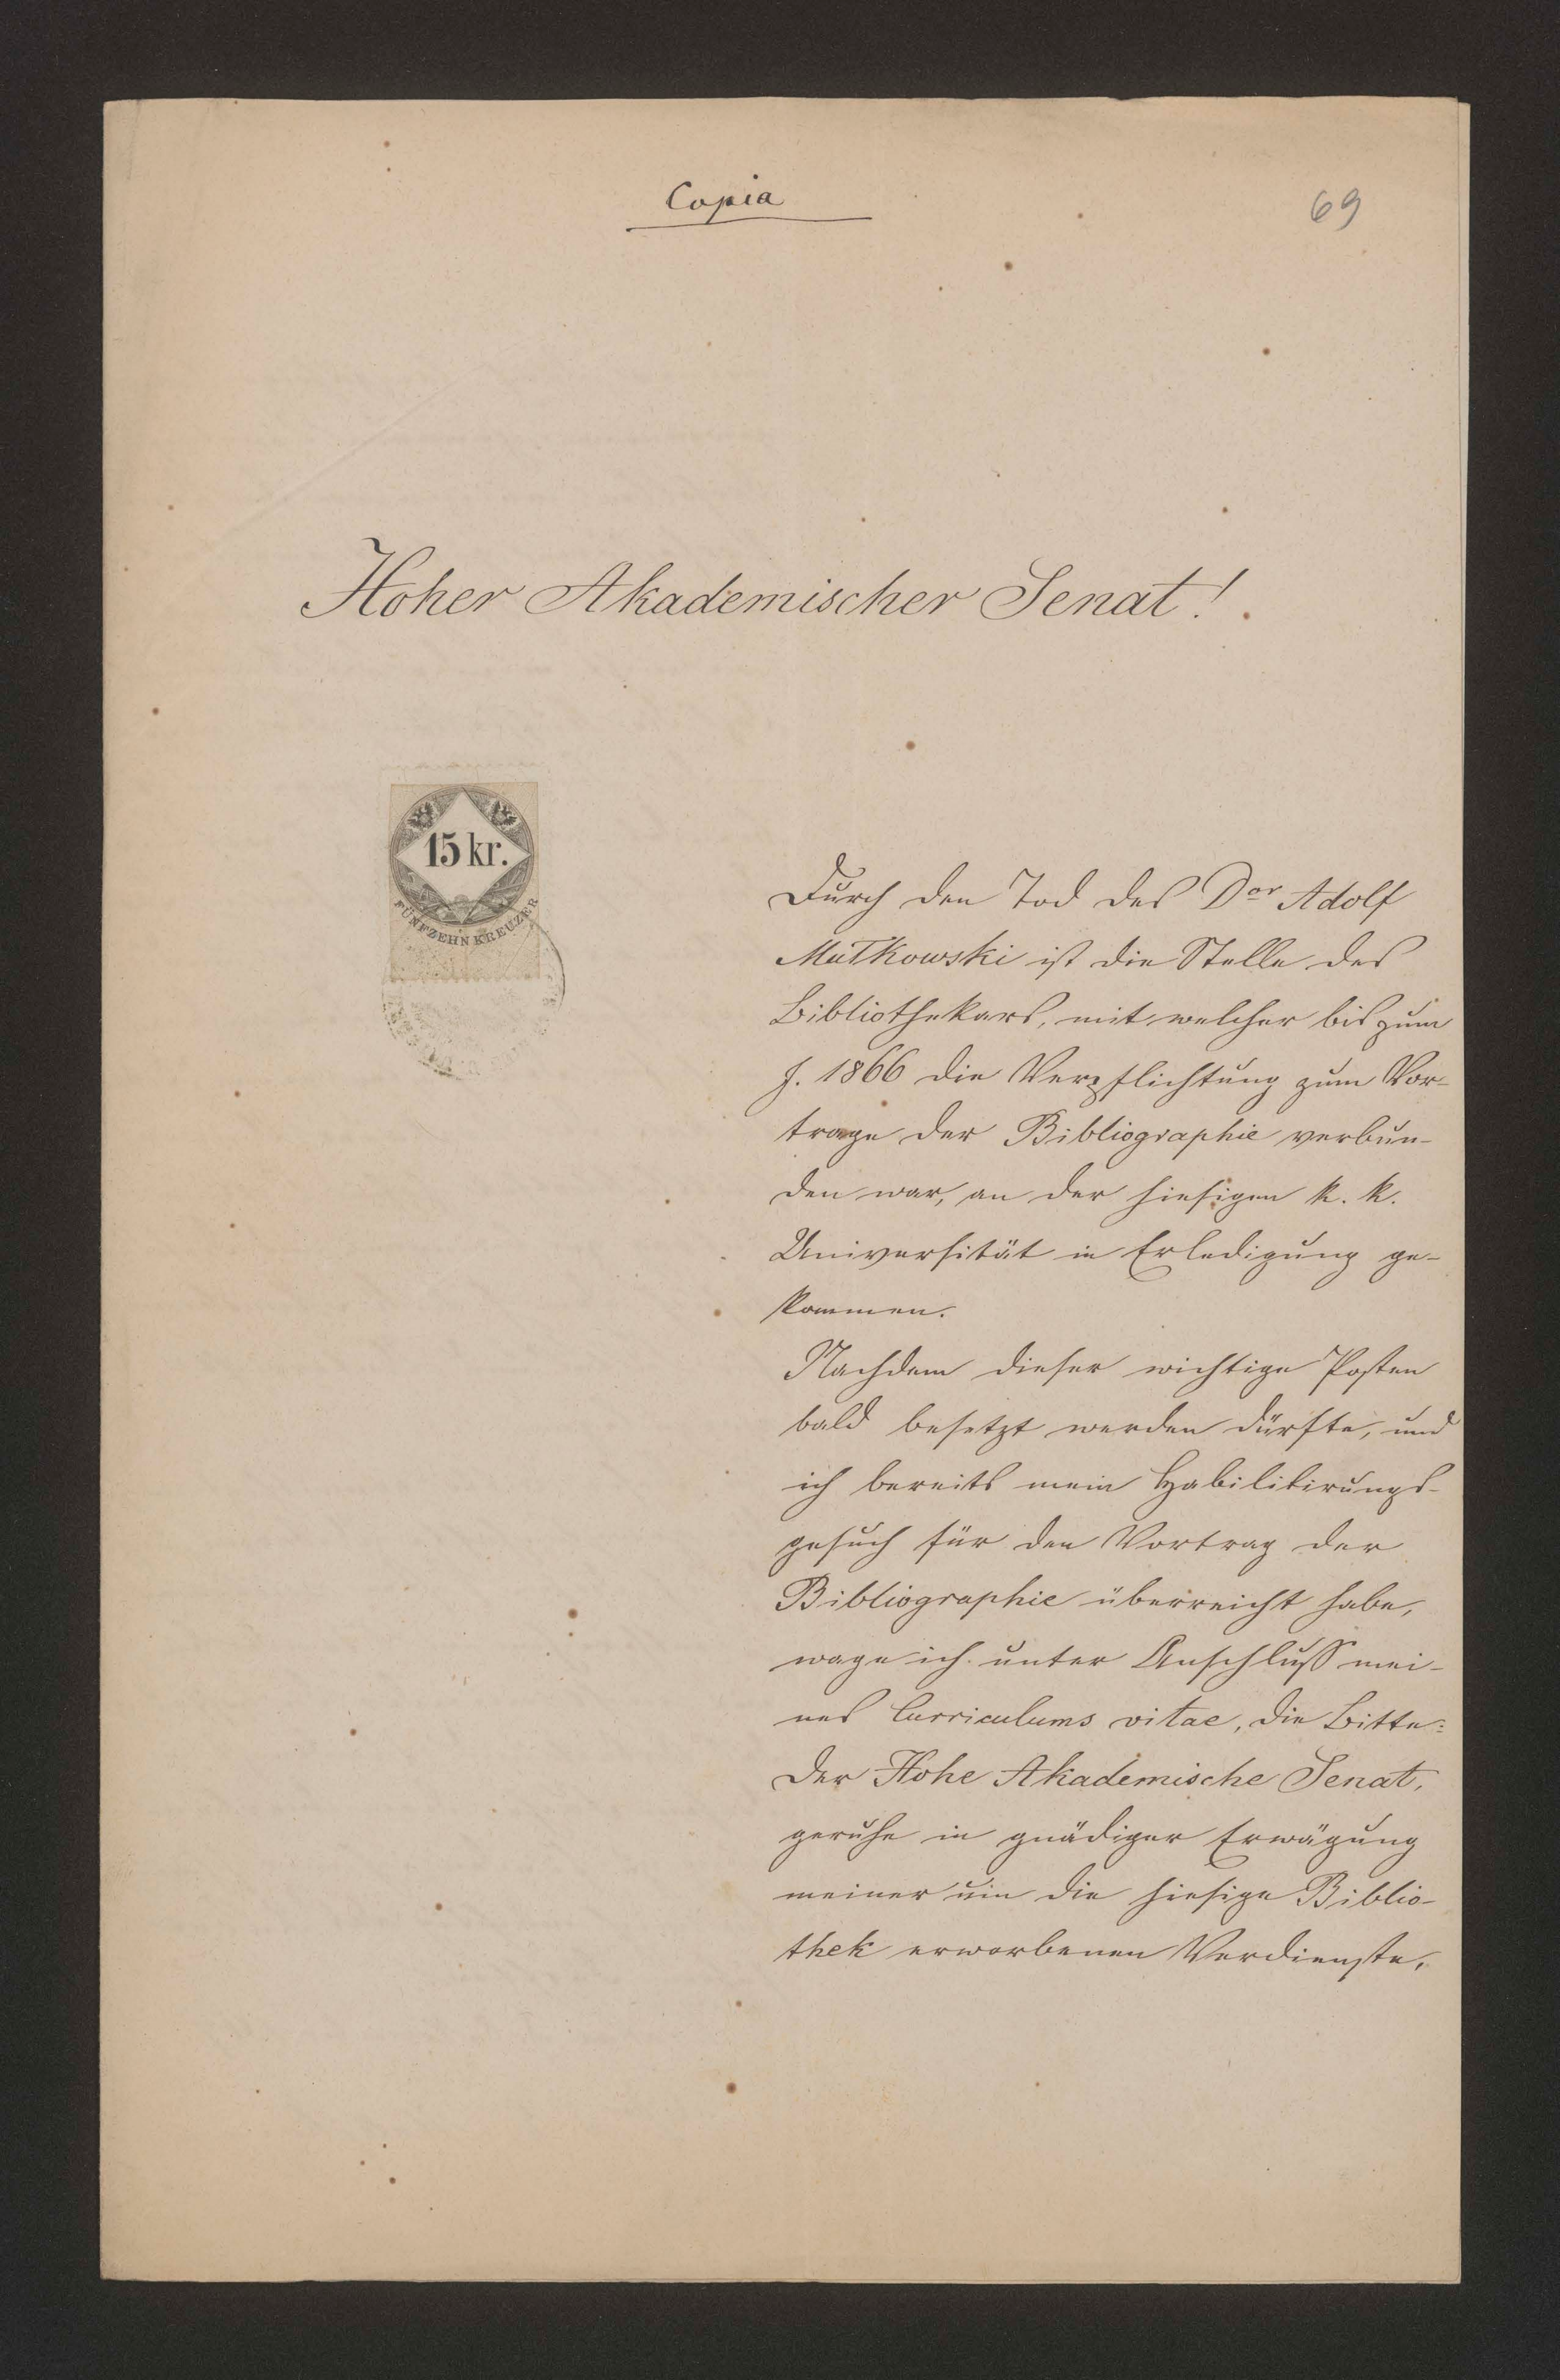 Copia
69
Hoher Akademischer Senat!
15 kr.
FÜNFZEHN KREUZER
Durch den Tod des Dor Adolf
Mutkowski ist die Stelle des
Bibliothekars, mit welcher bis zum
J. 1866 die Verpflichtung zum Vor-
trage der Bibliographie verbun-
den war, an der hiesigen k. k.
Universität in Erledigung ge-
kommen.
Nachdem dieser wichtige Posten
bald besetzt werden dürfte, und
ich bereits mein Habilitirungs-
gesuch für den Vortrag der
Bibliographie überreicht habe,
wage ich unter Anschluss mei-
nes Curriculums vitae, die Bitte:
Der Hohe Akademische Senat,
geruhe in gnädiger Erwägung
meiner um die hiesige Biblio-
thek erworbenen Verdienste,